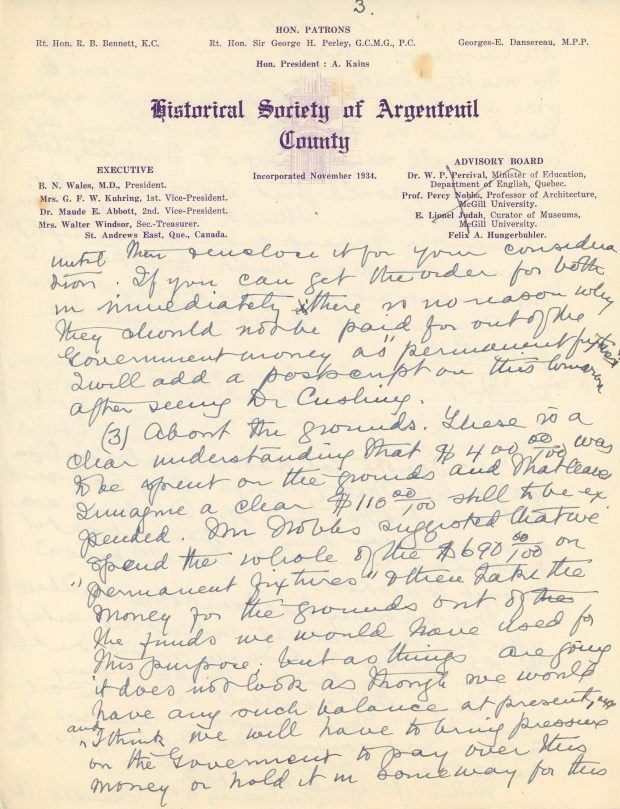 3.
HON. PATRONS
Rt. Hon. R. B. Bennett, K.C. Rt. Hon. Sir George H. Perley, G.C.M.G., P.C. Georges-E. Dansereau, M.P.P.
Hon. President : A. Kains
Historical Society of Argenteuil
County
Incorporated November 1934.
EXECUTIVE
B. N. Wales, M.D., President.
Mrs. G. F. W. Kuhring, 1st. Vice-President.
Dr. Maude E. Abbott, 2nd. Vice-President.
Mrs. Walter Windsor, Sec.-Treasurer.
St. Andrews East, Que., Canada.
ADVISORY BOARD
Dr. W. P. Percival, Minister of Education,
Department of English, Quebec.
Prof. Percy Nobbs, Professor of Architecture,
McGill University.
E. Lionel Judah, Curator of Museums,
McGill University.
Felix A. Hungerbuhler.
until then I enclose it for your considera
tion. If you can get the order for both
in immediately there is no reason why
they should not be paid for out of the
Government money as "permanent fixtures"
I will add a postscript on this tomorrow
after seeing Dr Cushing.
(3) About the grounds. There is a
clear understanding that $400 00/100 was
to be spent on the grounds and that leaves
I imagine a clear $110 00/100 still to be ex
pended. Mr Nobbs suggested that we
spend the whole of the $690 00/100 on
"permanent fixtures" & then take the
money for the grounds out of the
the funds we would have used for
this purpose, but as things are going
it does not look as though we would
have any such balance at present,
and I think we will have to bring pressure
on the Government to pay over this
money or hold it in some way for this